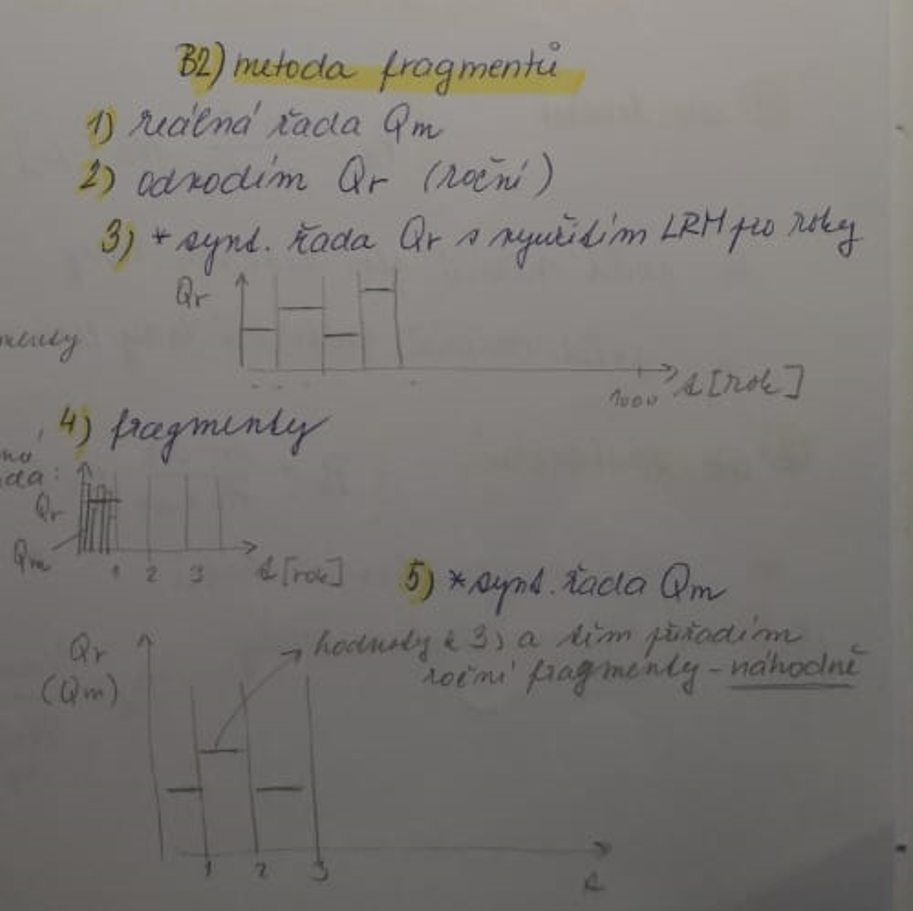 B2) metoda fragmentů
1) reálná řada Qm
2) odvodím Qr (roční)
3) *synt. řada Qr s využitím LRM pro roky
Qr
1000 t [rok]
4) fragmenty
Qr
Qm
1 2 3 t [rok]
5) *synt. řada Qm
hodnoty z 3) a těm přiřadím
roční fragmenty - náhodně
Qr
(Qm)
1 2 3
t